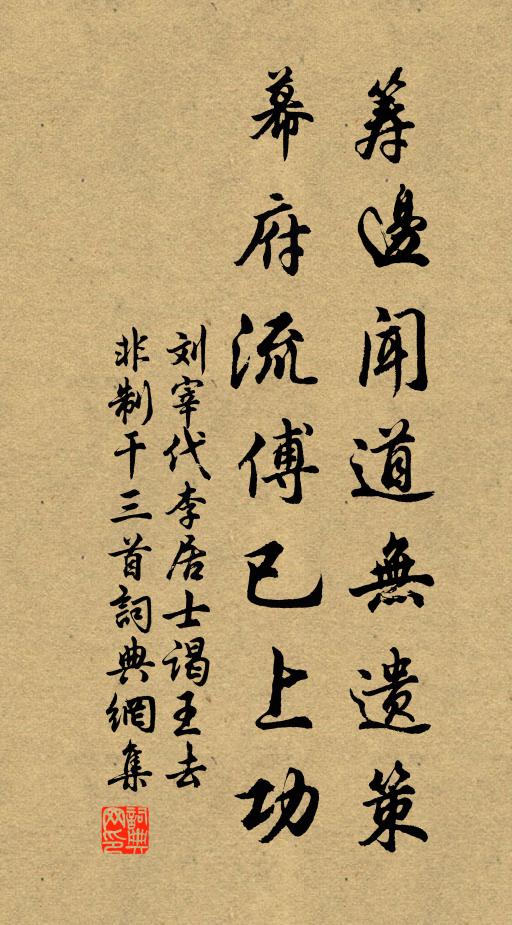 籌邊聞道無遺策
幕府流傅已上功
刘宰代李居士谒王去
非制干三首詞典網集
詞典网印